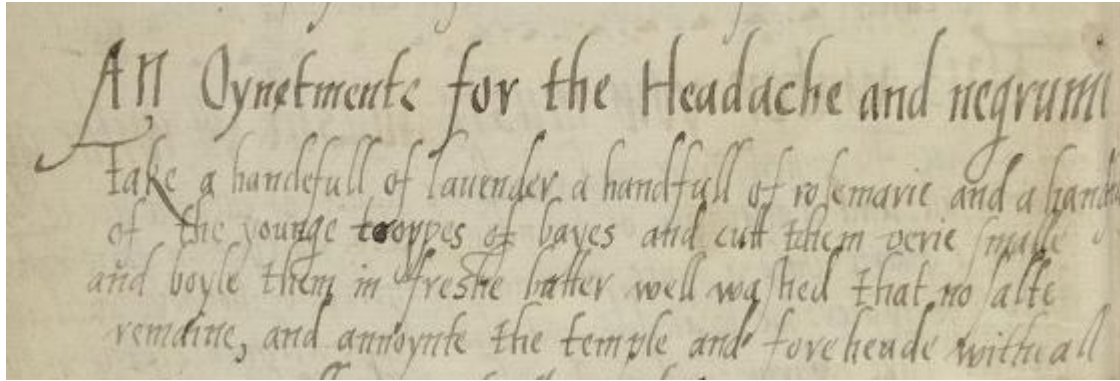 An Oynetmente for the Headache and negrumi
take a handefull of lauender a handfull of rosemarie and a hand
of the younge troppes of bayes and cutt them verie smalle
and boyle them in freshe butter well washed that no salte
remaine, and annoynte the temple and foreheade witheall